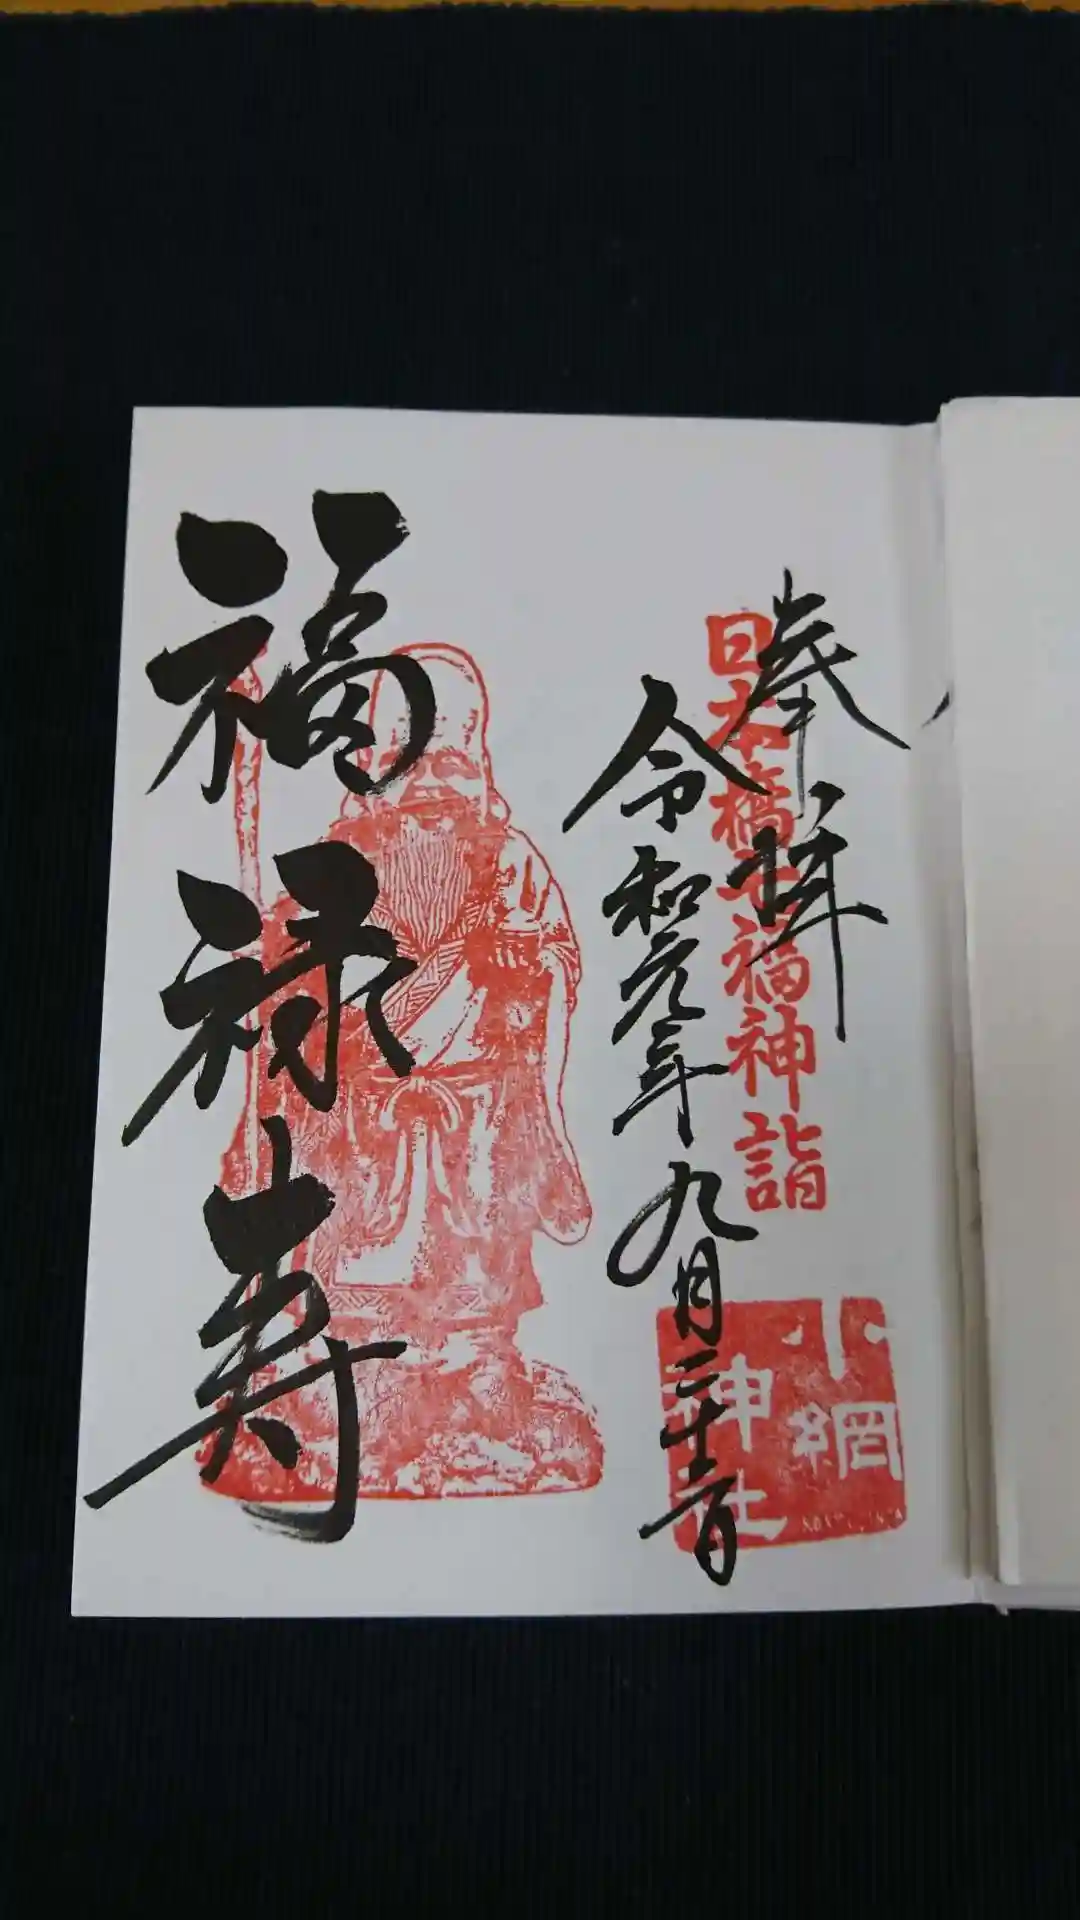 奉拝
日本橋七福神詣
小網神社
令和元年九月二十日
福禄寿